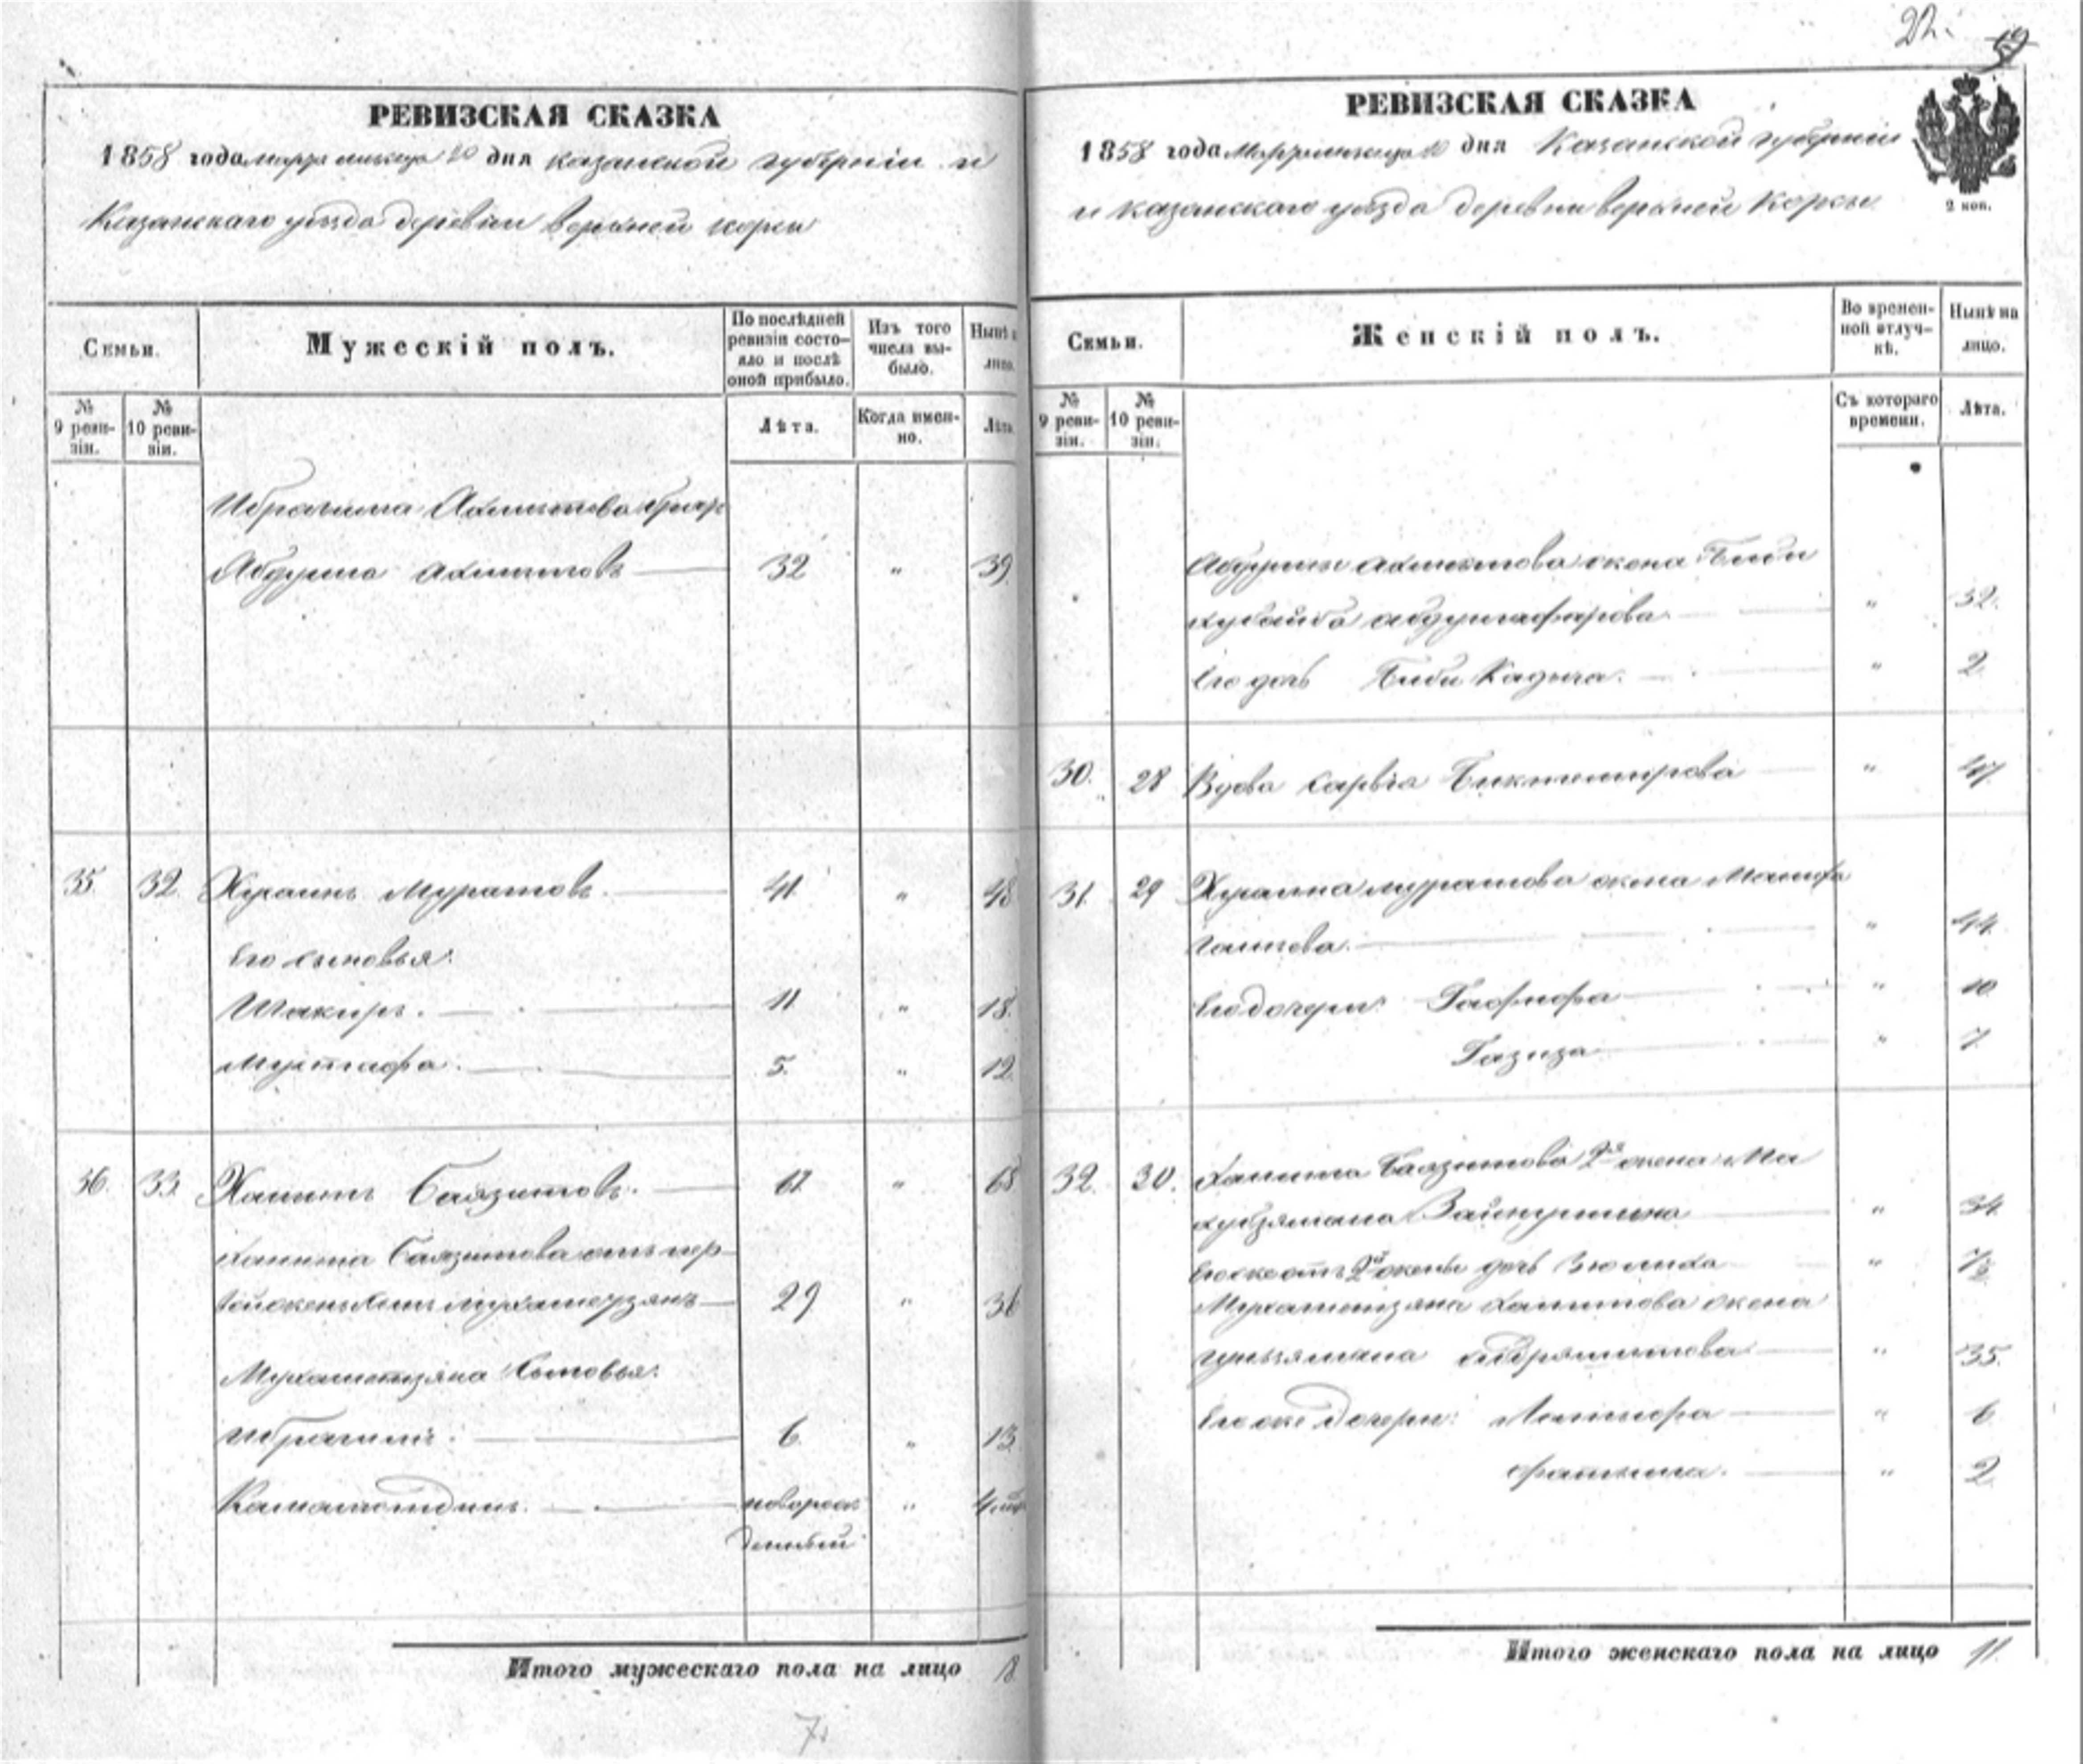 22.
РЕВИЗСКАЯ СКАЗКА
1858 года марта месяца 20 дня казанской губерніи и
Казанскаго уезда деревни верхней корсы
Семьи.
Мужескій полъ.
По послѣдней ревизіи состояло и послѣ оной прибыло.
Изъ того числа выбыло.
Нынѣ на лицо.
№ 9 ревизіи.
№ 10 ревизіи.
Лѣта.
Когда именно.
Лѣта.
Ибрагима Ахметова братъ
Абдулла Ахметовъ 32 " 39
35. 32. Хусаинъ Муратовъ. 41. " 48
Его сыновья:
Шакиръ. 11 " 18.
Мустафа. 5. " 12.
36. 33. Хамитъ Баязитовъ. 61. " 68
Хамита Баязитова отъ пер
вой жены сынъ Мухаметзянъ 29 " 36
Мухаметзяна сыновья:
Ибрагимъ. 6. " 13.
Камалетдинъ. новорож "
денный
Итого мужескаго пола на лицо 8
7.
РЕВИЗСКАЯ СКАЗКА
1858 года Марта месяца 20 дня Казанской губерніи
и казанскаго уезда деревни верхней Корсы
2 коп.
Семьи.
Женскій полъ.
Во временной отлучкѣ.
Нынѣ на лицо.
№ 9 ревизіи.
№ 10 ревизіи.
Съ котораго времени.
Лѣта.
Абдуллы Ахметова жена Биби
хубайба абдулгафарова " 32.
Его дочь Биби Кадыча. " 2.
30. 28 Вдова Сарвіа Биктемирова " 47
31. 29 Хусаина муратова жена Манифа
" 44.
Его дочери: Гафифа " 10
Газиза " 7.
32. 30. Хамита Баязитова 2я жена Ма
хубзямала Зайнуллина " 34.
Его же отъ 2й жены дочь Зюлиха " 7/2
Мухаметзяна Хамитова жена
" 35.
Его же дочери: Латифа " 6
Фатыма. " 2
Итого женскаго пола на лицо 11.